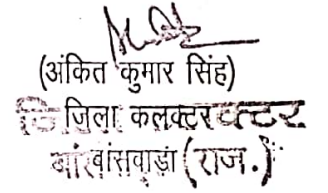 (अंकित कुमार सिंह)
जिला कलक्टर
बांसवाड़ा (राज.)